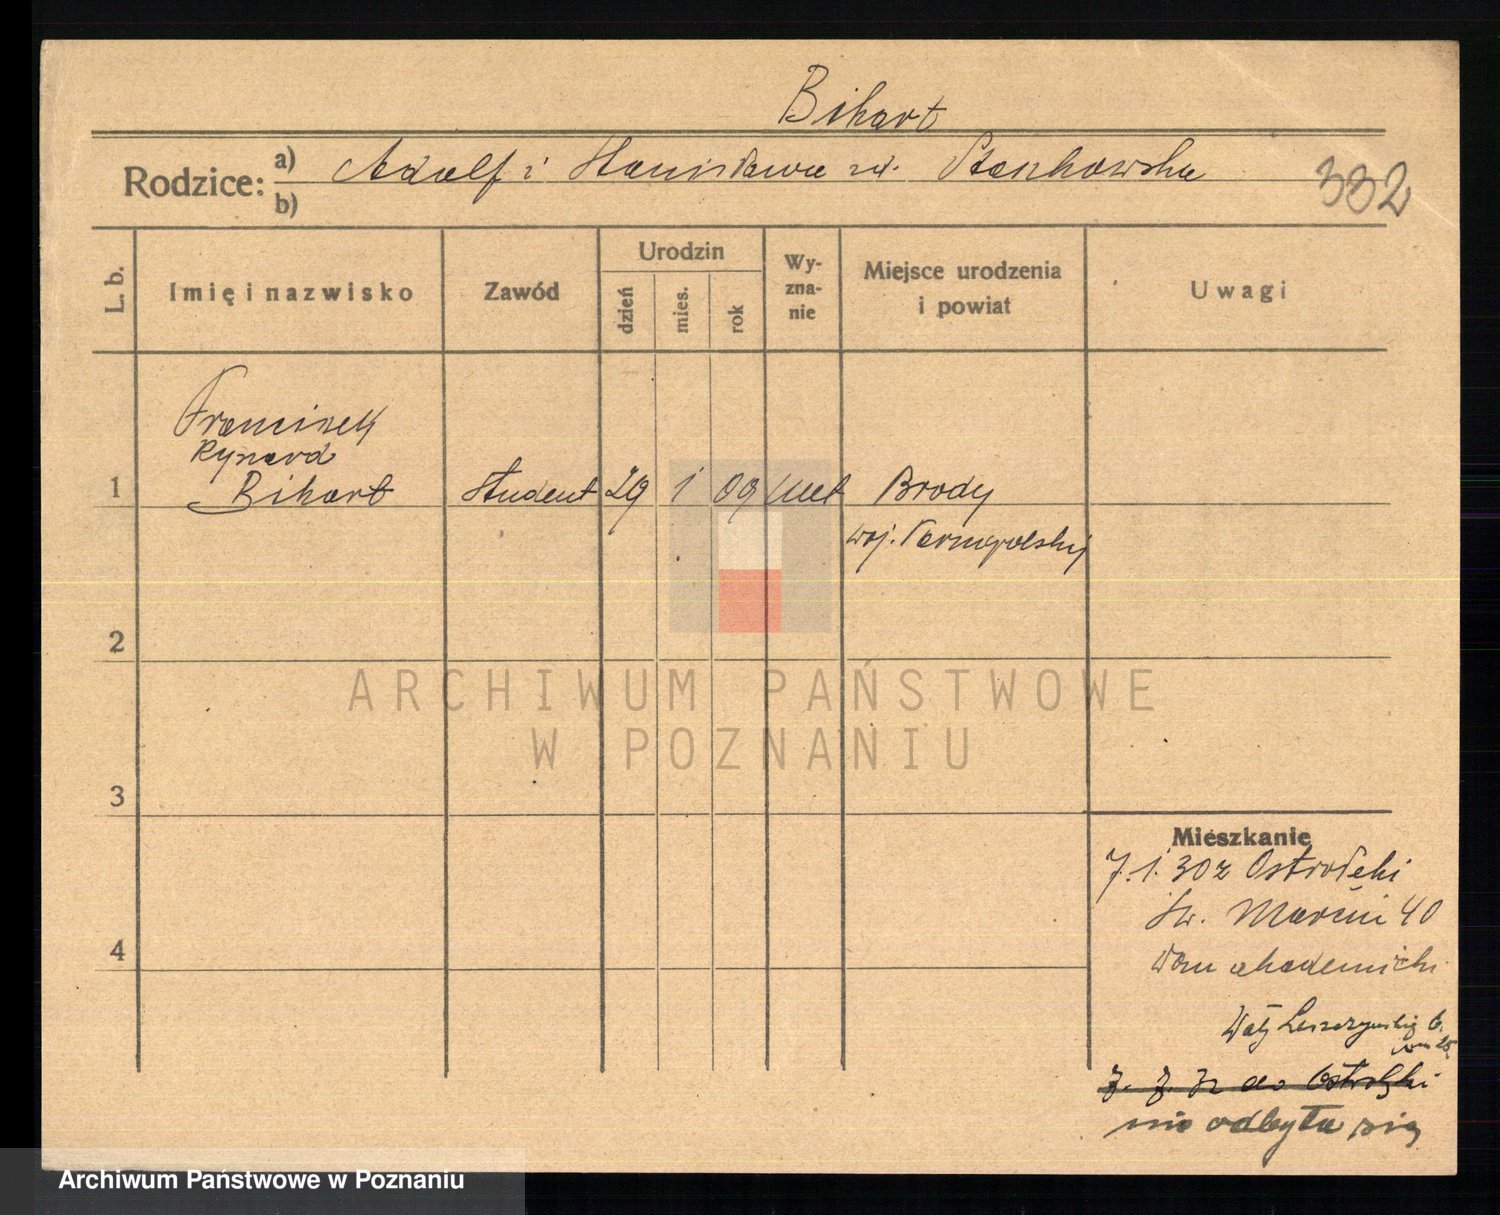 Bihart
Rodzice: a) Adolf i Stanisława zd. Stachowska
b)
332
L. b.
Imię i nazwisko
Zawód
Urodzin
dzień
mies.
rok
Wy-
zna-
nie
Miejsce urodzenia
i powiat
Uwagi
Franciszek
Ryszard
1 Bihart student 29 1 09 Brody
woj. Tarnopolskij
2
3
4
Mieszkanie
7.1.30 z Ostrołęki
Św. Marcin 40
Dom akademicki
Wały Leszczyńskiego 6.
m 25.
7. 7. 32 do Ostrołęki
nie odbyła się
ARCHIWUM PAŃSTWOWE
W POZNANIU
Archiwum Państwowe w Poznaniu